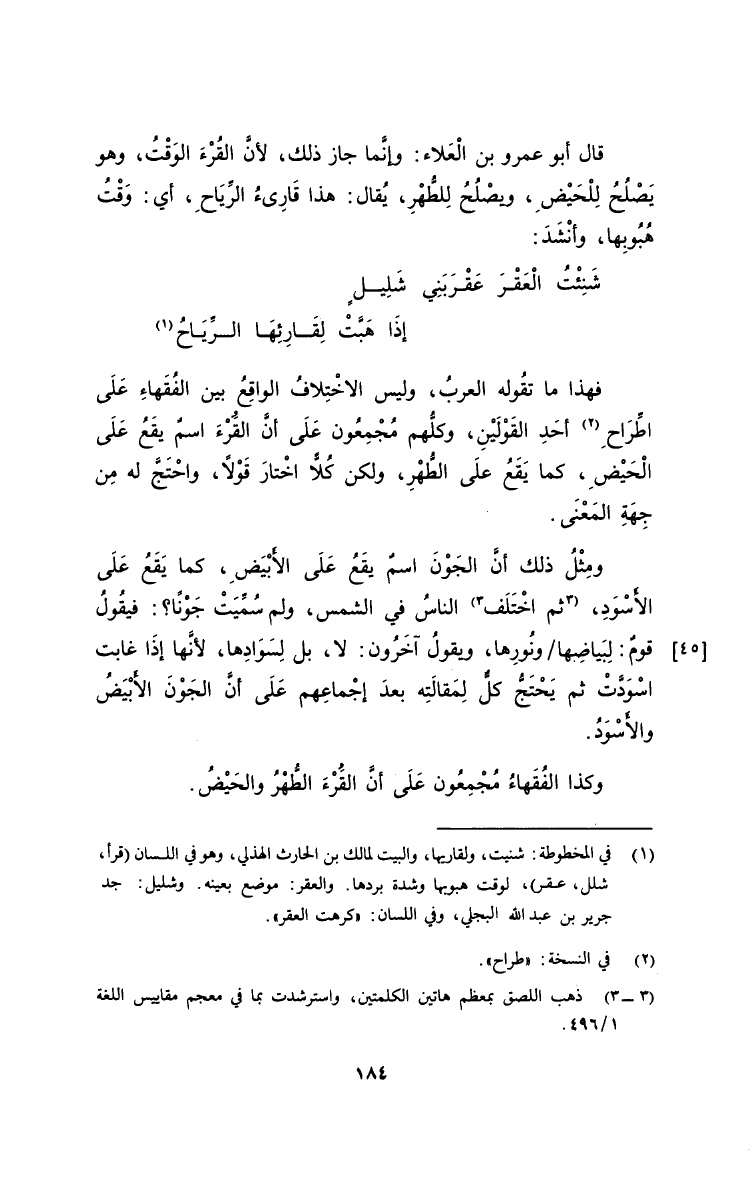 قال أبو عمرو بن الْعَلاء: وإنَّما جاز ذلك، لأنَّ القُرْءَ الوَقْتُ، وهو
يَصْلُحُ لِلْحَيْضِ، ويصْلُحُ للطُّهْرِ، يُقال: هذا قَارِىءُ الرِّيَاحِ، أي: وَقْتُ
هُبُوبِها، وأنْشَدَ:
شَنِئْتُ الْعَقْرَ عَقْرَبَنِي شَلِيلٍ
إذَا هَبَّتْ لِقَارِئِهَا الرِّيَاحُ(١)
فهذا ما تقُوله العربُ، وليس الاخْتِلافُ الواقِعُ بين الفُقَهاءِ عَلَى
اطِّرَاحِ(٢) أحَدِ القَوْلَيْنِ، وكلُّهم مُجْمِعُون عَلَى أنَّ القُرْءَ اسمٌ يقَعُ عَلَى
الْحَيْضِ، كما يَقَعُ علَى الطُّهْرِ، ولكن كُلًّا اخْتارَ قَوْلًا، واحْتَجَّ له مِن
جِهَةِ المَعْنَى.
ومِثْلُ ذلك أنَّ الجَوْنَ اسمٌ يقَعُ عَلَى الأبْيَضِ، كما يَقَعُ عَلَى
الأسْوَدِ، (٣ثم اخْتَلَف٣) الناسُ في الشمس، ولم سُمِّيَتْ جَوْنًا؟: فيقُولُ
[٤٥] قومٌ: لِبَياضِها/ ونُورِها، ويقولُ آخَرُون: لا، بل لِسَوَادِها، لأنَّها إذَا غابت
اسْوَدَّتْ ثم يَحْتَجُّ كلٌّ لِمَقالَتِه بعدَ إجْماعِهم عَلَى أنَّ الجَوْنَ الأبْيَضُ
والأسْوَدُ.
وكذا الفُقَهاءُ مُجْمِعُون عَلَى أنَّ القُرْءَ الطُّهْرُ والحَيْضُ.
(١) في المخطوطة: شنيت، ولقاريها، والبيت لمالك بن الحارث الهذلي، وهو في اللسان (قرأ،
شلل، عقر)، لوقت هبوبها وشدة بردها. والعقر: موضع بعينه. وشليل: جد
جرير بن عبد الله البجلي، وفي اللسان: «كرهت العقر».
(٢) في النسخة: «طراح».
(٣ – ٣) ذهب اللصق بمعظم هاتين الكلمتين، واسترشدت بما في معجم مقاييس اللغة
١/٤٩٦.
١٨٤